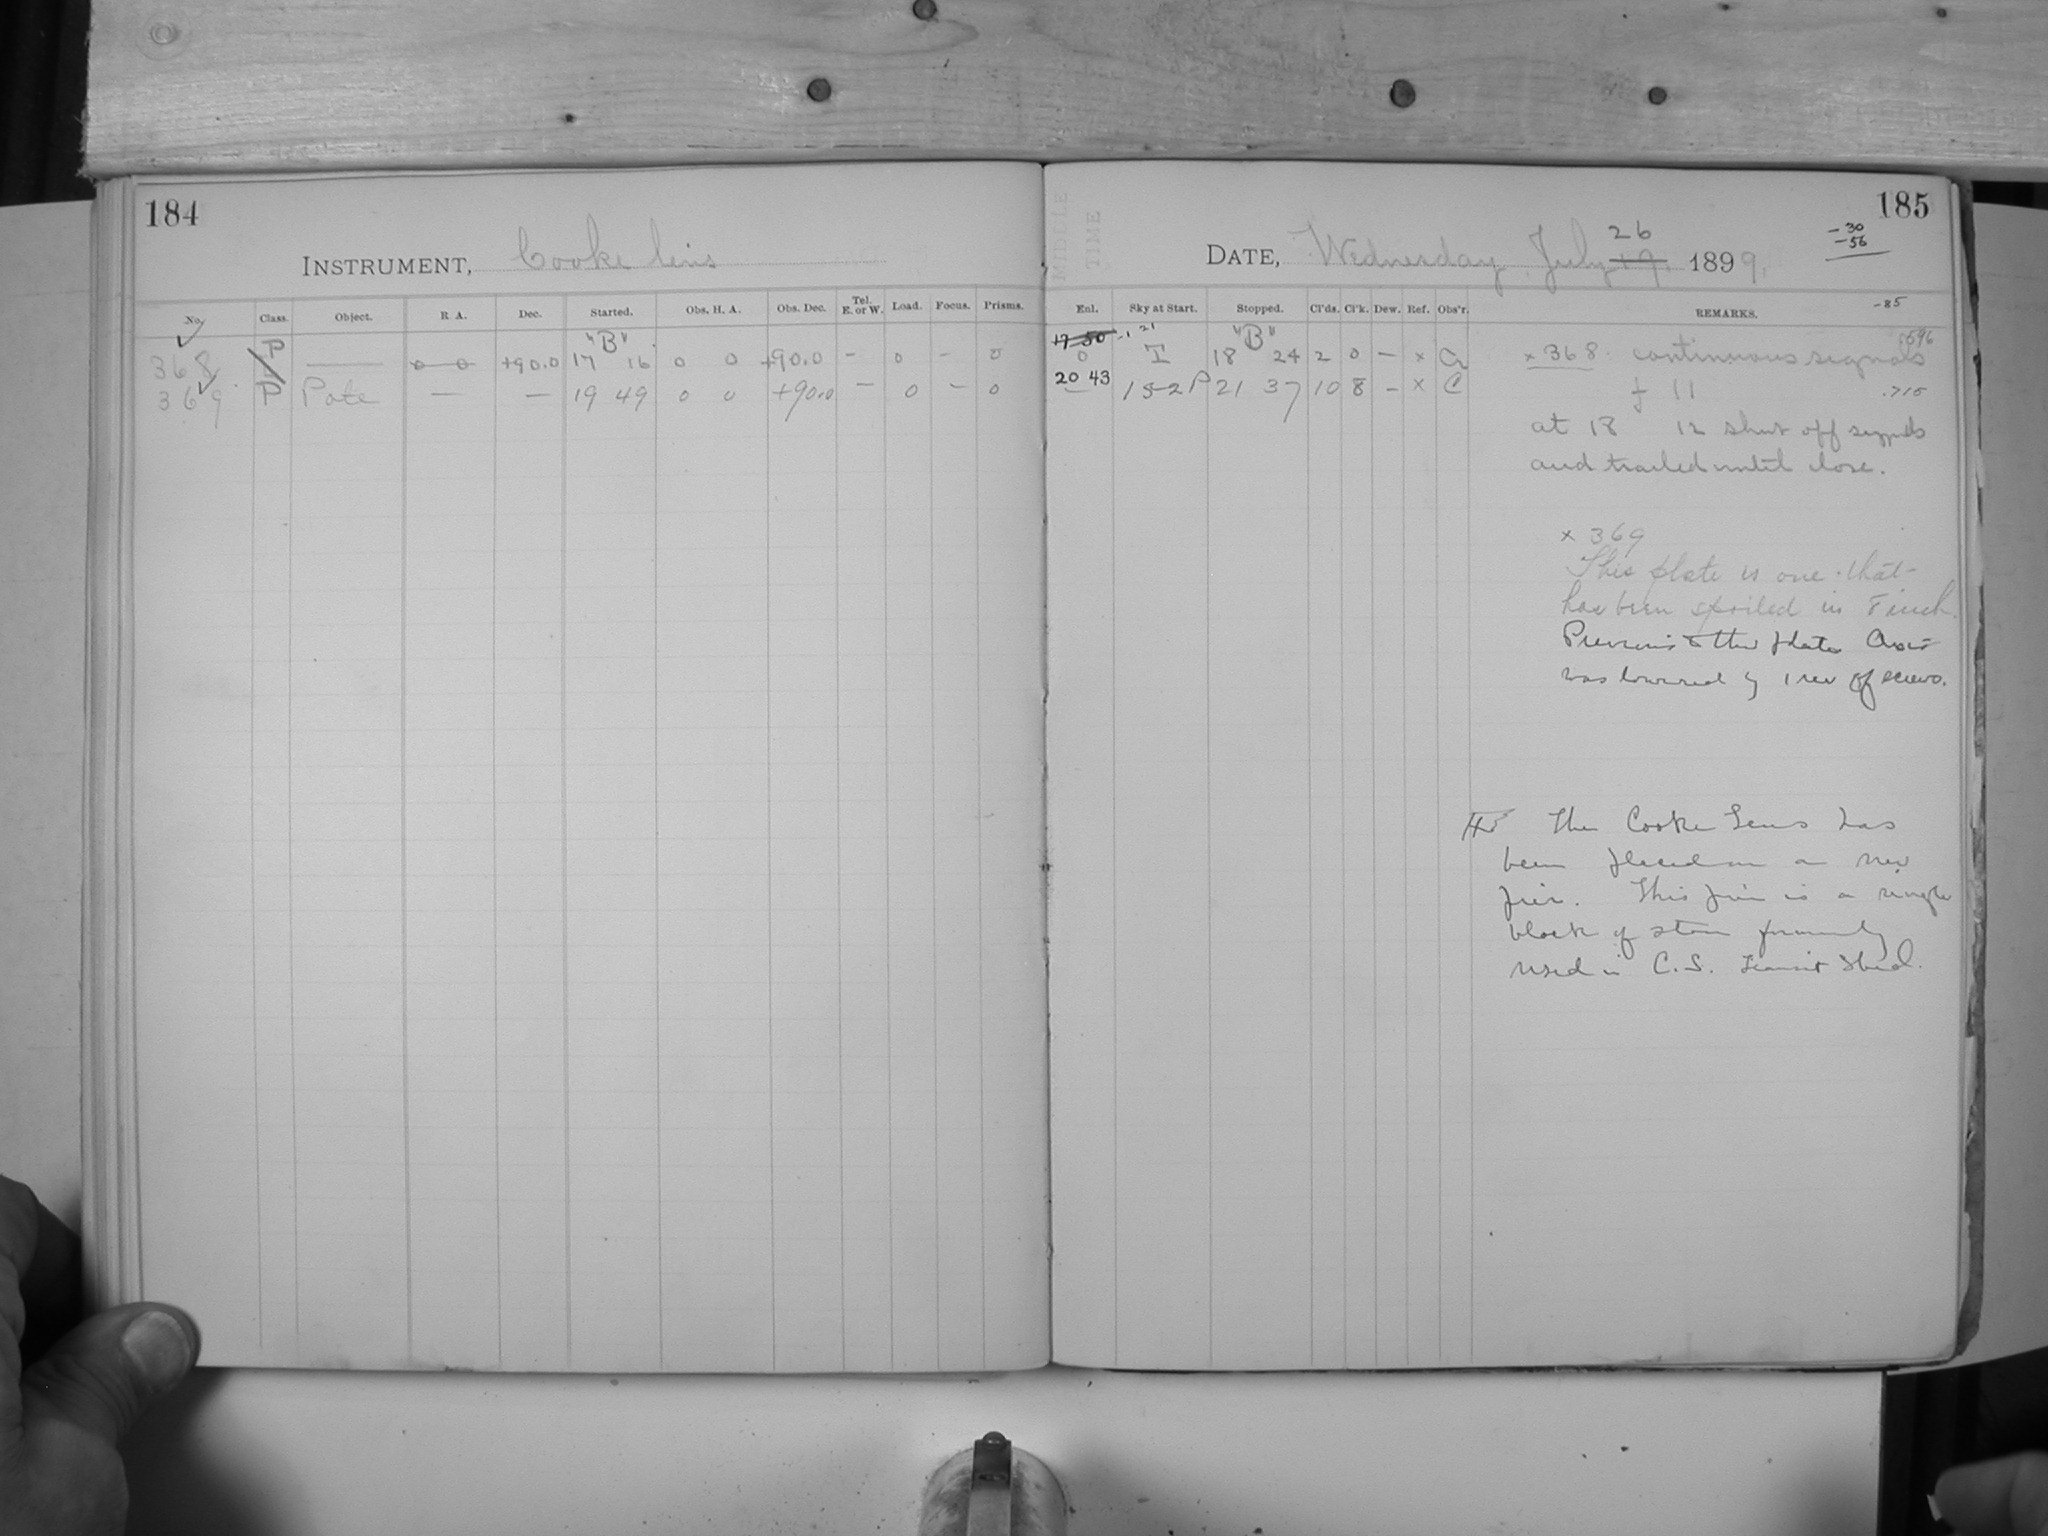 184
INSTRUMENT, Cooke lens
No. Class. Object. R. A. Dec. Started. Obs. H. A. Obs. Dec. Tel. E. or W. Load. Focus. Prisms.
"B"
368 P — 0 0 +90.0 17 16 0 0 +90.0 - 0 - 0
369 P Pole — — 19 49 0 0 +90.0 — 0 - 0
MIDDLE TIME
185
DATE, Wednesday July 19. 1899.
26
-30
-56
-85
Enl. Sky at Start. Stopped. Cl'ds. Cl'k. Dew. Ref. Obs'r. REMARKS.
17 50 -1 21 "B" .596
0 I 18 24 2 0 — x a x 368. continuous signals
20 43
— 15-2P 21 37 10 8 - x C f 11 .715
at 18 12 shut off signals
and trailed until close.
x 369
This plate is one that
has been spoiled in 8 inch.
Previous to this plate Axis
was lowered by 1 rev of screws.
The Cooke Lens has
been placed on a new
pier. This pier is a single
block of stone formerly
used in C. S. transit shed.